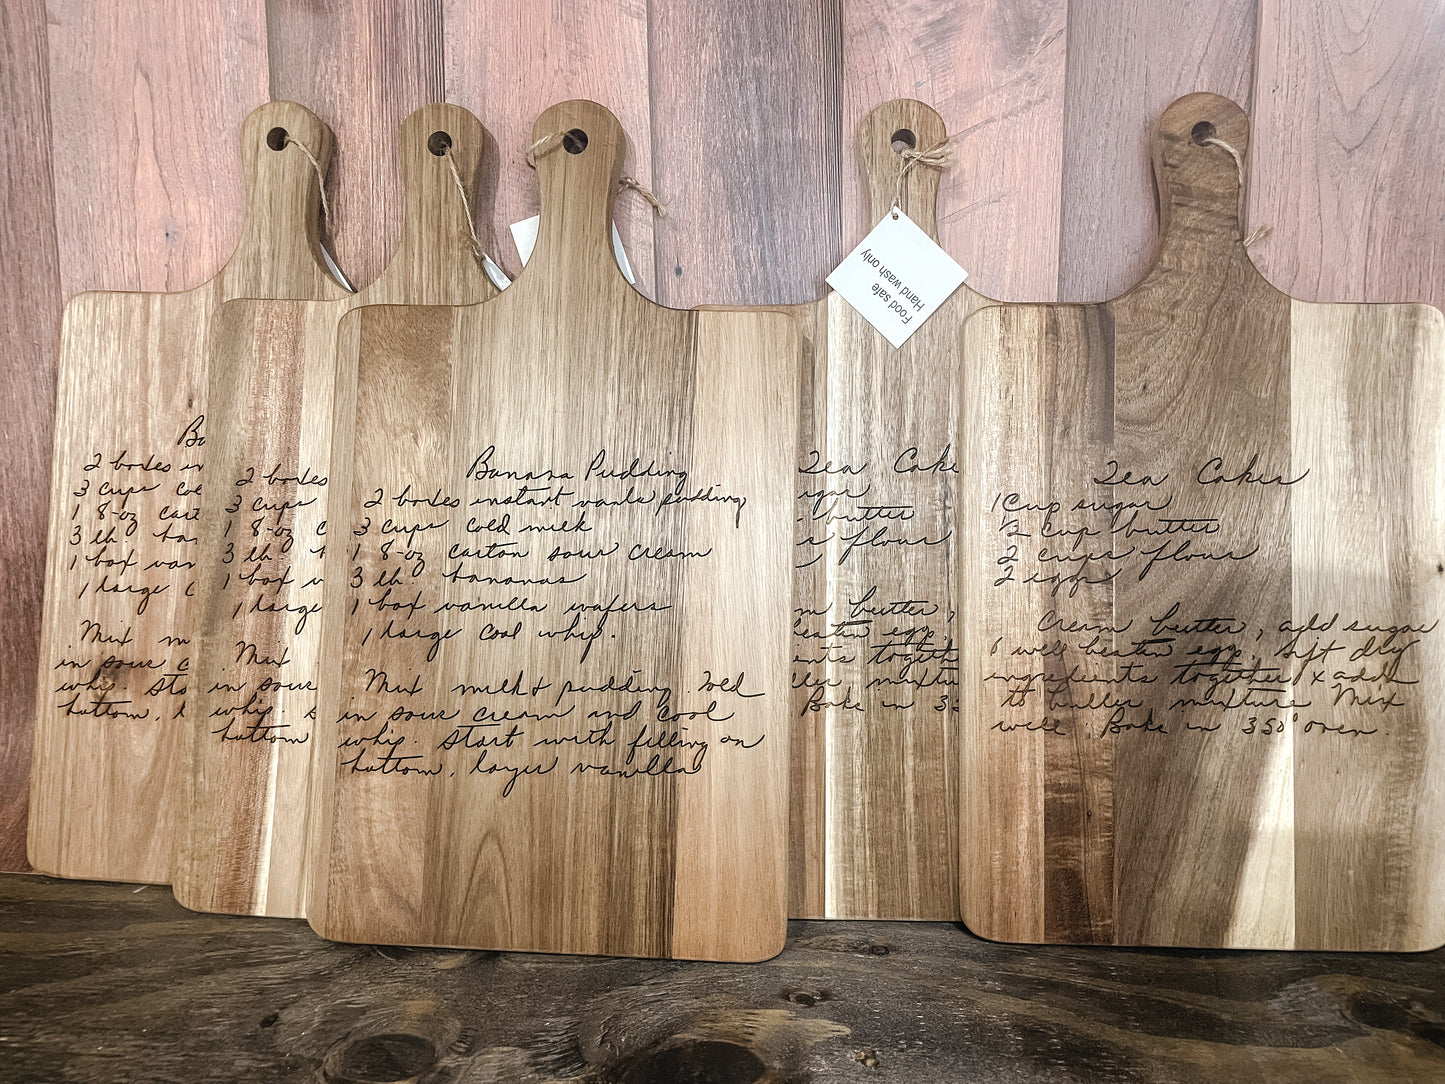 Ba
2 boxes in
3 cups col
1 8-oz cart
3 lb. ban
1 box van
1 large c
Mix m
in sour c
whip. Sta
bottom, l
2 boxes
3 cups
1 8-oz c
3 lb.
1 box v
1 large
Mix
in sour
whip. s
bottom
Banana Pudding
2 boxes instant vanla pudding
3 cups cold milk
1 8-oz carton sour cream
3 lb. bananas
1 box vanilla wafers
1 large cool whip.
Mix milk & pudding. Fold
in sour cream and cool
whip. Start with filling on
bottom, layer vanilla
Food safe
Hand wash only
Tea Cake
ugar
butter
s flour
m butter,
beaten egg.
ents togeth
tter mixtu
Bake in 35
Tea Cakes
1 Cup sugar
1/2 cup butter
2 cups flour
2 eggs
Cream butter, add sugar
& well beaten egg. Sift dry
ingredients together & add
to butter mixture Mix
well. Bake in 350° oven.